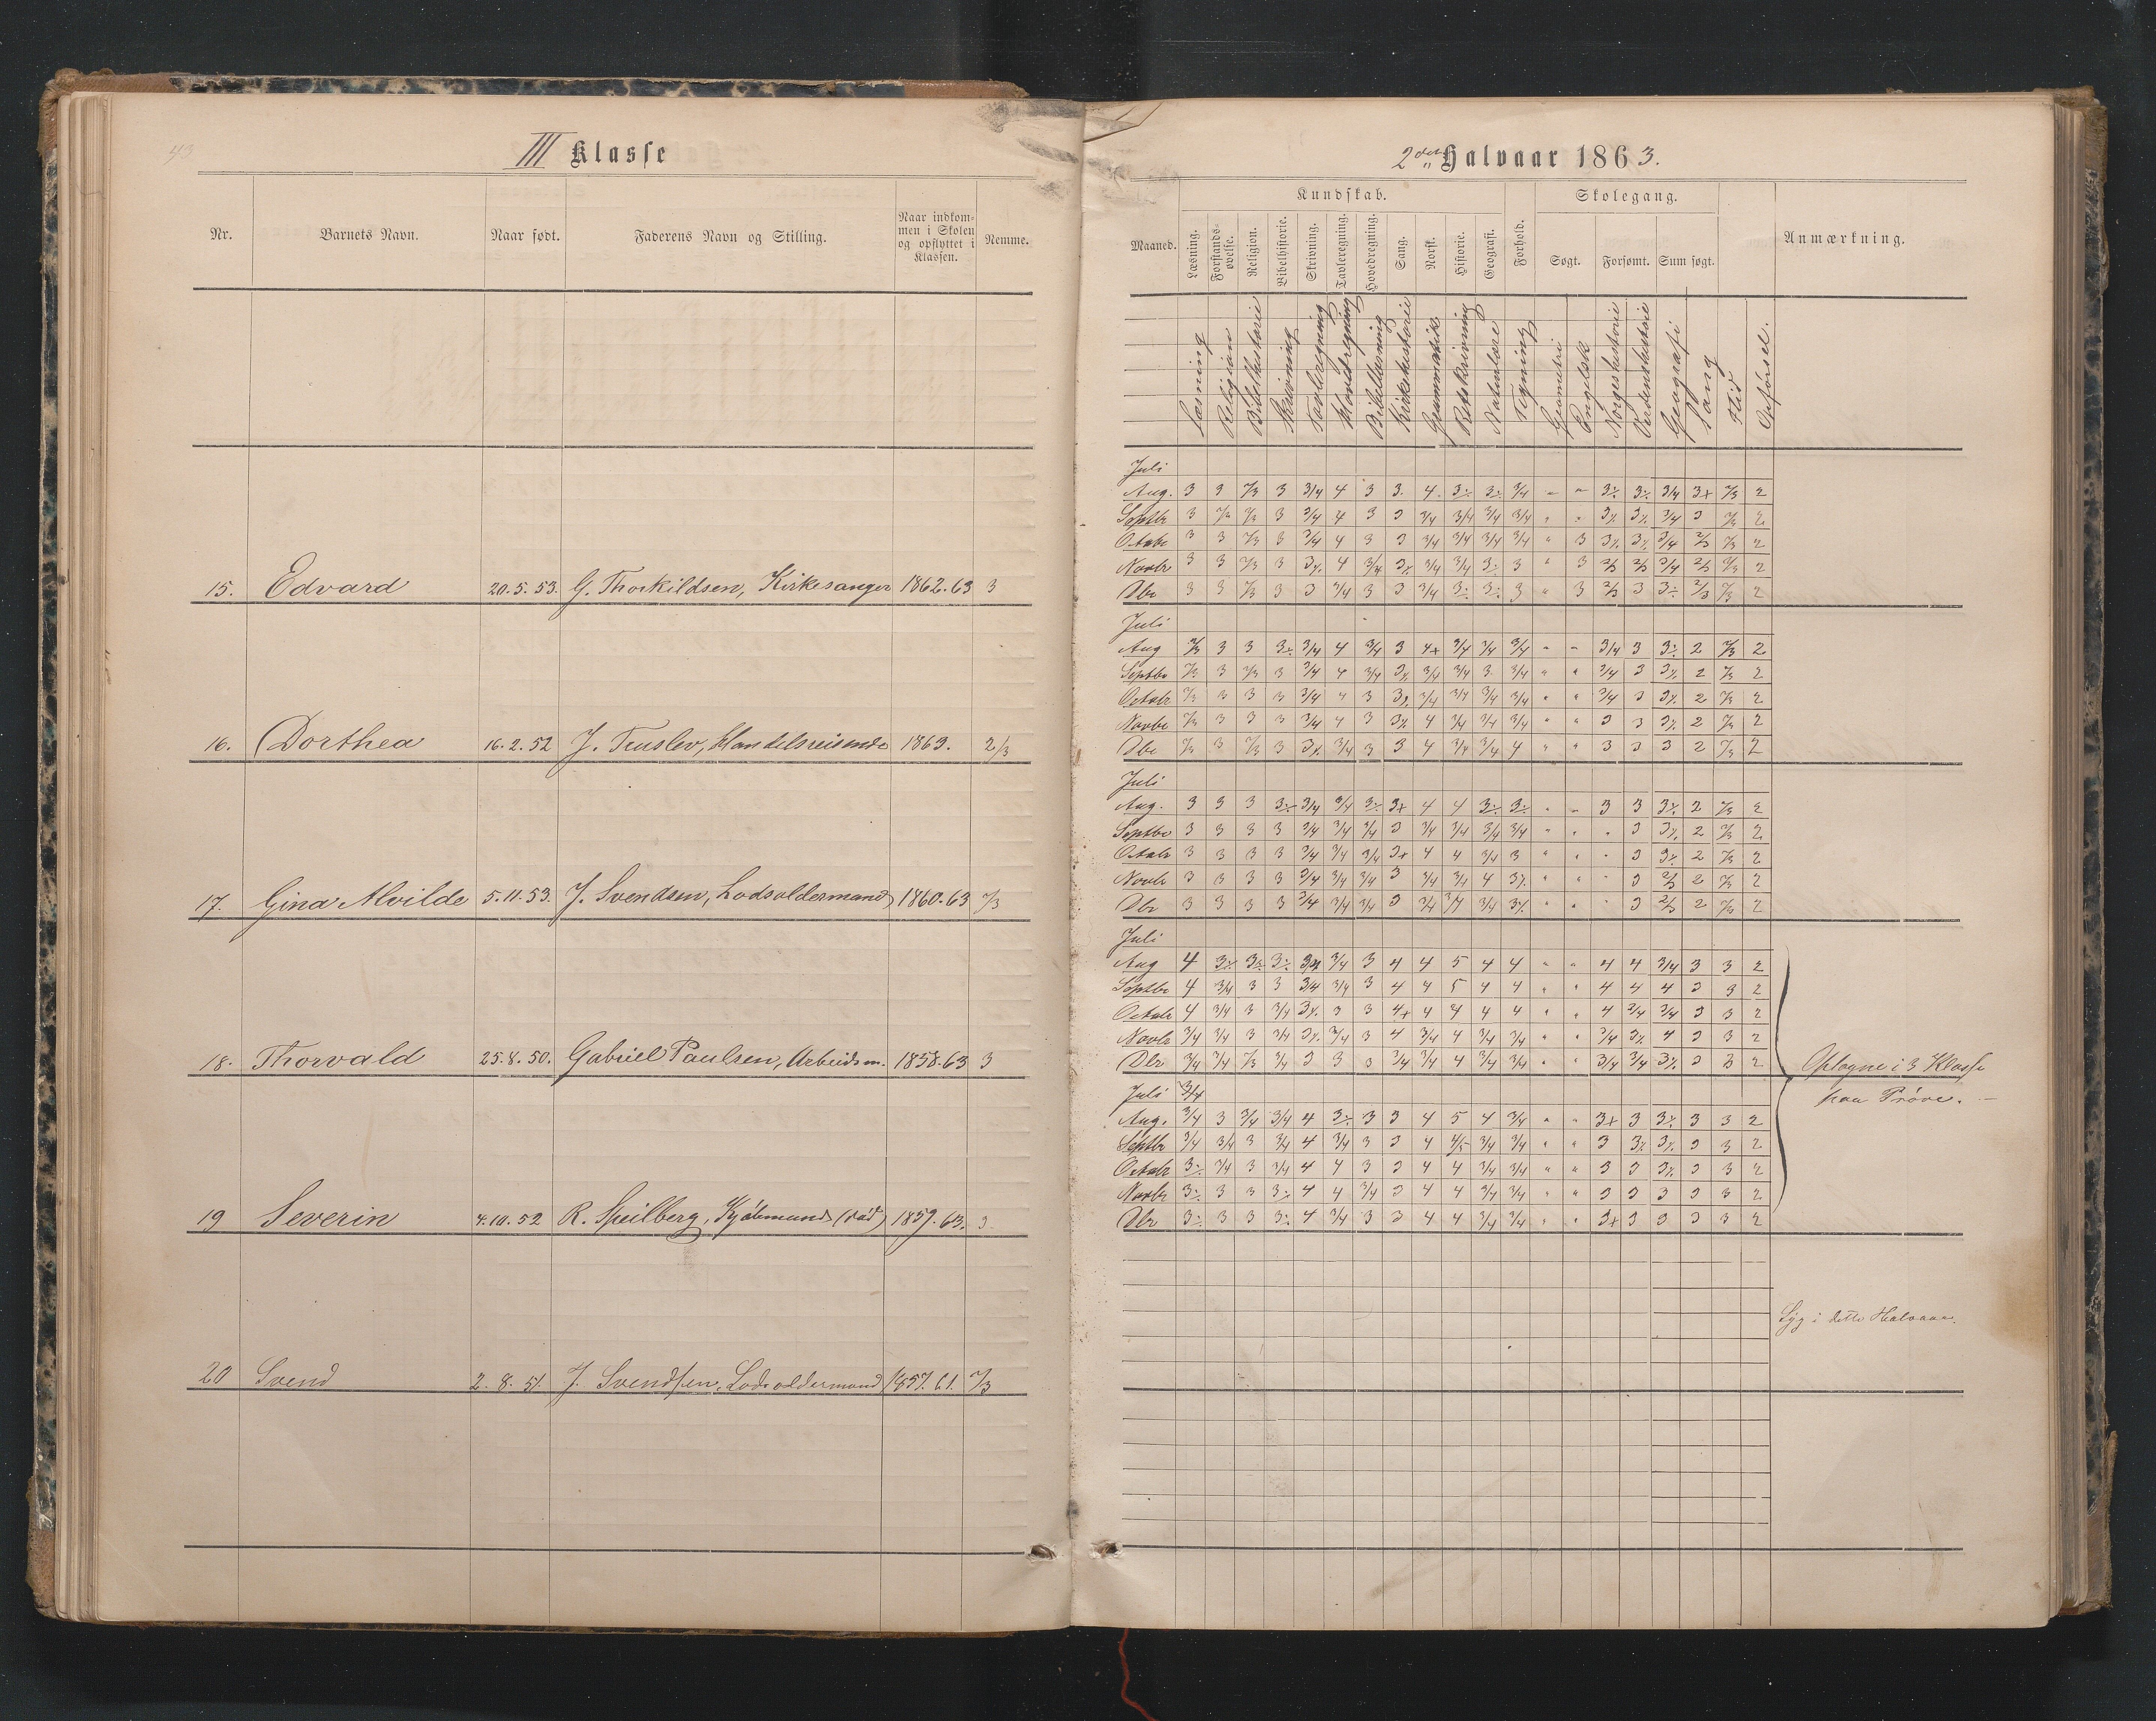 43
III Klasse
Nr. Barnets Navn. Naar født. Faderens Navn og Stilling. Naar indkom-
men i Skolen
og opflyttet i
Klassen. Nemme.
15. Edvard 20.5.53. G. Thorkildsen, Kirkesanger 1862.63 3
16. Dorthea 16.2.52 J. , Handelsreisende 1863. 2/3
17. Gina Alvilde 5.11.53. J. Svendsen, Lodsoldermand 1860.63 2/3
18. Thorvald 25.8.50. Gabriel Paulsen, Arbeidsm. 1858.63 3
19 Severin 4.10.52 R. Speilberg, Kjöbmand (död) 1859.63. 3.
20 Svend 2.8.51. J. Svendsen, Lodsoldermand 1857.61. 2/3
2det Halvaar 1863.
Kundskab. Skolegang.
Maaned. Læsning. Forstands-
øvelse. Religion. Bibelhistorie. Skrivning. Tavleregning. Hovedregning. Sang. Norsk. Historie. Geografi. Forhold. Søgt. Forsømt. Sum søgt. Anmærkning.
Læsning Religion Bibelhistorie Skrivning Tavleregning Hovedregning Bibellæsning Kirkehistorie Grammatik Retskrivning Naturlære Tegning Geometri Engelsk Norgeshistorie Verdenshistorie Geografi Sang Flid Opførsel.
Juli
Aug. 3 3 2/3 3 3/4 4 3 3. 4. 3÷ 3÷ 3/4 " " 3÷ 3÷ 3/4 3+ 2/3 2
Septbr 3 2/3 2/3 3 3/4 4 3 3 3/4 3/4 3/4 3/4 " " 3÷ 3÷ 3/4 3 2/3 2
Octobr 3 3 2/3 3 3/4 4 3 3 3/4 3/4 3/4 3/4 " 3 3÷ 3÷ 3/4 2/3 2/3 2
Novbr 3 3 2/3 3 3÷ 4 3/4 3÷ 3/4 3/4 3÷ 3 " 3 2/3 2/3 3/4 2/3 2/3 2
Dbr 3 3 2/3 3 3 3/4 3 3 3/4 3÷ 3÷ 3 " 3 2/3 3 3÷ 2/3 2/3 2
Juli
Aug 2/3 3 3 3÷ 3/4 4 3/4 3 4+ 3/4 3/4 3/4 " " 3/4 3 3÷ 2 2/3 2
Septbr 2/3 3 2/3 3 3/4 4 3/4 3÷ 3/4 3/4 3 3/4 " " 3/4 3 3÷ 2 2/3 2
Octobr 2/3 3 3 3 3/4 4 3 3÷ 3/4 3/4 3/4 3/4 " " 3/4 3 3÷ 2 2/3 2
Novbr 2/3 3 3 3 3/4 4 3 3÷ 4 3/4 3/4 3/4 " " 3 3 3÷ 2 2/3 2
Dbr 2/3 3 2/3 3 3÷ 3/4 3 3 4 3/4 3/4 4 " " 3 3 3 2 2/3 2
Juli
Aug. 3 3 3 3÷ 3/4 3/4 3÷ 3+ 4 4 3÷ 3÷ " " 3 3 3÷ 2 2/3 2
Septbr 3 3 3 3 3/4 3/4 3/4 3 3/4 3/4 3/4 3/4 " " " 3 3÷ 2 2/3 2
Octobr 3 3 3 3 3/4 3/4 3/4 3+ 4 4 3/4 3 " " " 3 3÷ 2 2/3 2
Novbr 3 3 3 3 3/4 3/4 3/4 3 3/4 3/4 4 3÷ " " " 3 2/3 2 2/3 2
Dbr 3 3 3 3 3/4 3/4 3/4 3 3/4 3/4 3/4 3÷ " " " 3 2/3 2 2/3 2
Juli
Aug 4 3÷ 3÷ 3÷ 3/4 3/4 3 4 4 5 4 4 " " 4 4 3/4 3 3 2
Septbr 4 3/4 3 3 3/4 3/4 3 4 4 5 4 4 " " 4 4 4 3 3 2
Octobr 4 3/4 3 3/4 3÷ 3 3 4+ 4 4 4 4 " " 4 3/4 3/4 3 3 2
Novbr 3/4 3/4 3 3/4 3÷ 3/4 3 4 3/4 4 3/4 3/4 " " 3/4 3÷ 4 3 3 2
Dbr 3/4 3/4 2/3 3/4 3 3 3 3/4 3/4 4 3/4 3/4 " " 3/4 3/4 3÷ 3 3 2
Optagne i 3 Klasse
paa Prøve. –
Juli 3/4
Aug. 3/4 3 3/4 3/4 4 3÷ 3 3 4 5 4 3/4 " " 3+ 3 3÷ 3 3 2
Septbr 3/4 3/4 3 3/4 4 3/4 3 3 4 4/5 3/4 3/4 " " 3 3÷ 3÷ 3 3 2
Octobr 3÷ 3/4 3 3/4 4 4 3 3 4 4 3/4 3/4 " " 3 3 3÷ 3 3 2
Novbr 3÷ 3 3 3÷ 4 4 3/4 3 4 4 3/4 3/4 " " 3 3 3 3 3 2
Dbr 3÷ 3 3 3÷ 4 3/4 3 3 4 4 3/4 3/4 " " 3+ 3 3 3 3 2
Syg i dette Halvaar.